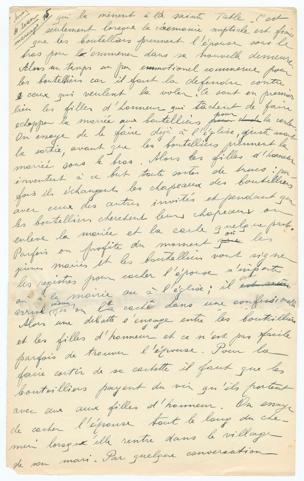 qui la mènent à la sainte Table. C'est
seulement lorsque la cérémonie nuptiale est finie
que les boutelliers prennent l'épouse sous le
bras pour l' emmener dans sa nouvelle demeure
Alors un temps un peu émotionel commence pour
les boutelliers car il faut la défendre contre
ceux qui veulent la voler. Ce sont en premier
lieu les filles d'honneur qui tâchent de faire
echapper la mariée aux boutelliers la cacher
On essaye de le faire déjà à l'église, juste avant
la sortie, avant que les boutelliers prennent la
mariée sous le bras. Alors les filles d'honneur
inventent à ce but toute sortes de trucs: par
fois ils échangent les chapeaux des boutelliers
avec ceux des autres invités et pendant que
les boutelliers cherchent leurs chapeaux on
enlève la mariée et la cache
Parfois on profite du moment où les
jeunes mariés et les boutelliers vont signer
les registres pour cacher l'épouse n'importe
où la mariée ou à l'église; il
arrive qu'on la cache dans une confessionale
Alors une débatte s'engage entre les boutelliers
et les filles d'honneur et ce n'est pas facile
parfois de trouver l'épouse. Pour la
faire sortir de sa cachette il faut que les
boutelliers payent du vin qu'ils portent
avec eux aux filles d'honneur. On essaye
de cacher l'épouse tout le long du che-
min lorsqu'elle rentre dans le village
de son mari. Par quelque conversation